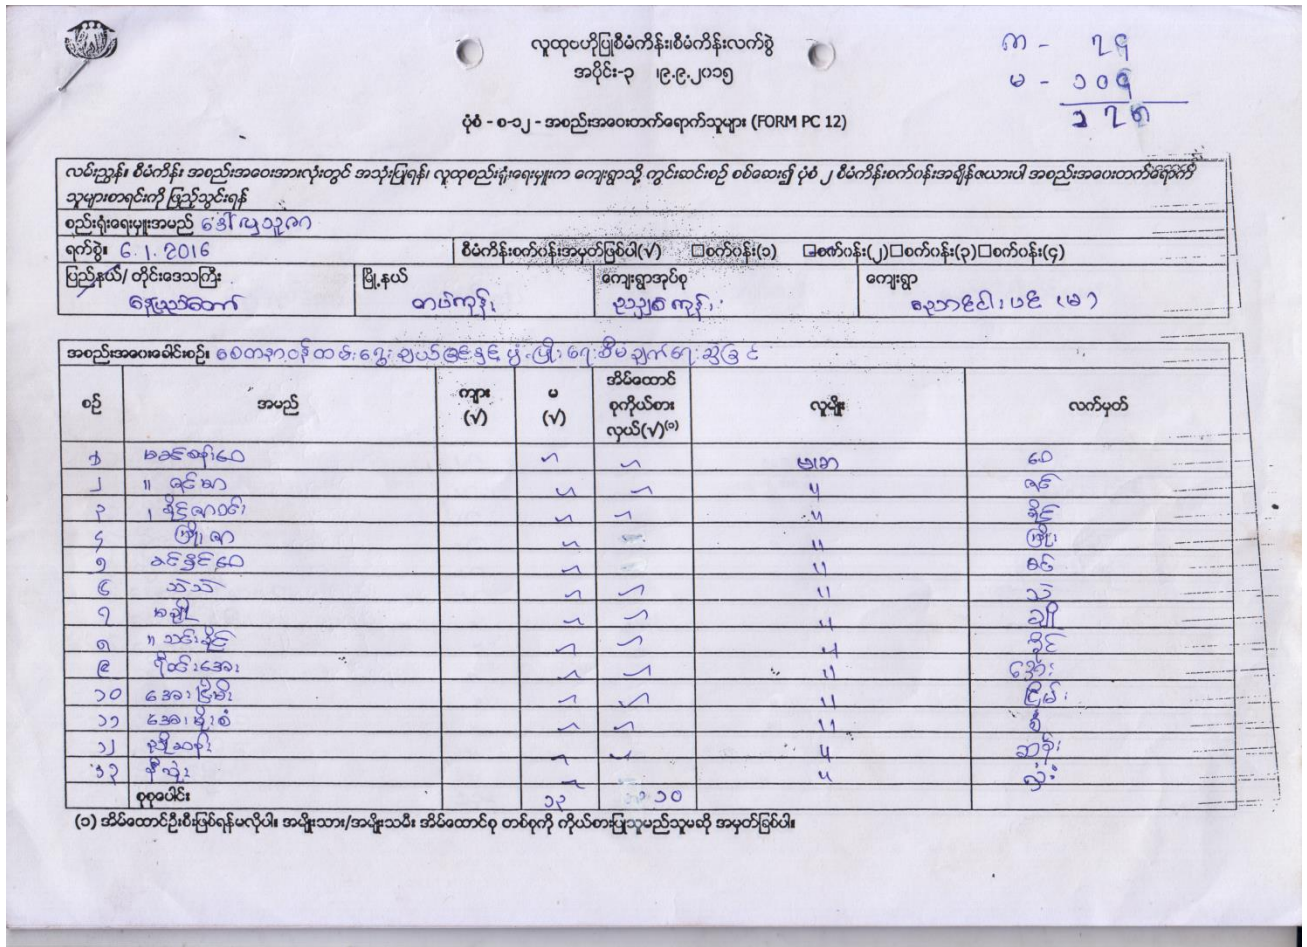 လူထုဗဟိုပြုစီမံကိန်း၊စီမံကိန်းလက်စွဲ
အပိုင်း-၃ ၊၉.၉.၂၀၁၅
က - ၇၄
မ - ၁၀၄
၁၇၈
ပုံစံ - စ-၁၂ - အစည်းအဝေးတက်ရောက်သူများ (FORM PC 12)
လမ်းညွှန်။ စီမံကိန်း အစည်းအဝေးအားလုံးတွင် အသုံးပြုရန်၊ လူထုစည်းရုံးရေးမှူးက ကျေးရွာသို့ ကွင်းဆင်းစဉ် စစ်ဆေး၍ ပုံစံ ၂ စီမံကိန်းစက်ဝန်းအချိန်ဇယားပါ အစည်းအဝေးတက်ရောက်
သူများစာရင်းကို ဖြည့်သွင်းရန်
စည်းရုံးရေးမှူးအမည် ဒေါ်လှသူဇာ
ရက်စွဲ။ 6.1.2016 စီမံကိန်းစက်ဝန်းအမှတ်ဖြစ်ပါ(√) □စက်ဝန်း(၁) □စက်ဝန်း(၂)□စက်ဝန်း(၃)□စက်ဝန်း(၄)
ပြည်နယ်/ တိုင်းဒေသကြီး မြို့နယ် ကျေးရွာအုပ်စု ကျေးရွာ
နေပြည်တော် တပ်ကုန်း
အစည်းအဝေးခေါင်းစဉ်။ စေတနာ့ဝန်ထမ်းရွေးချယ်ခြင်းနှင့်ဖွံ့ဖြိုးရေးစီမံချက်ရေးဆွဲခြင်း
စဉ် အမည် ကျား (√) မ (√) အိမ်ထောင်စုကိုယ်စားလှယ်(√)⁽¹⁾ လူမျိုး လက်မှတ်
၁ မခင်စန်းဝေ ✓ ✓ ဗမာ ဝေ
၂ " ခင်မာ ✓ ✓ " ခင်
၃ " ခိုင်ဇာဝင်း ✓ ✓ " ခိုင်
၄ ဖြိုးဇာ ✓ " ဖြိုး
၅ ခင်နှင်းဝေ ✓ " ခင်
၆ သဲသဲ ✓ ✓ " သဲ
၇ မချို ✓ ✓ " ချို
၈ " သင်းခိုင် ✓ ✓ " ခိုင်
၉ ဝိုင်းအေး ✓ ✓ " အေး
၁၀ အေးငြိမ်း ✓ ✓ " ငြိမ်း
၁၁ အေးမိုးစံ ✓ ✓ " စံ
၁၂ ညိုဆန်း ✓ ✓ " ဆန်း
၁၃ ✓ "
စုစုပေါင်း ၁၃ ၁၀
(၁) အိမ်ထောင်ဦးစီးဖြစ်ရန်မလိုပါ။ အမျိုးသား/အမျိုးသမီး အိမ်ထောင်စု တစ်စုကို ကိုယ်စားပြုသူမည်သူမဆို အမှတ်ခြစ်ပါ။